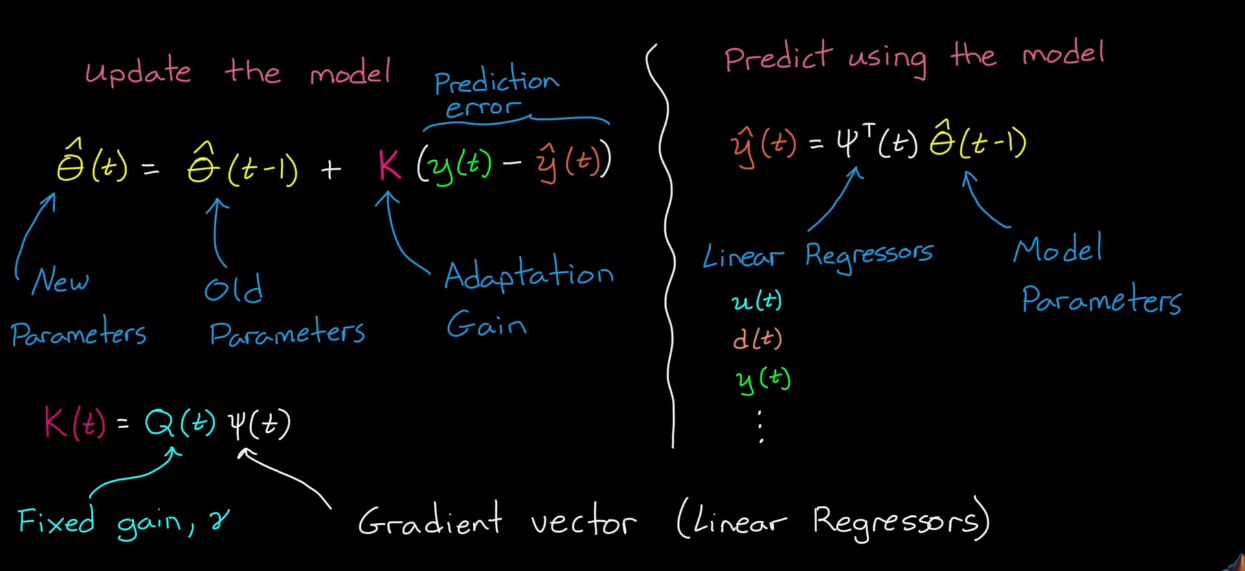 Update the model
Prediction
error
θ̂(t) = θ̂(t-1) + K (y(t) - ŷ(t))
New
Parameters
Old
Parameters
Adaptation
Gain
K(t) = Q(t) ψ(t)
Fixed gain, γ
Gradient vector (Linear Regressors)
Predict using the model
ŷ(t) = ψᵀ(t) θ̂(t-1)
Linear Regressors
u(t)
d(t)
y(t)
⋮
Model
Parameters